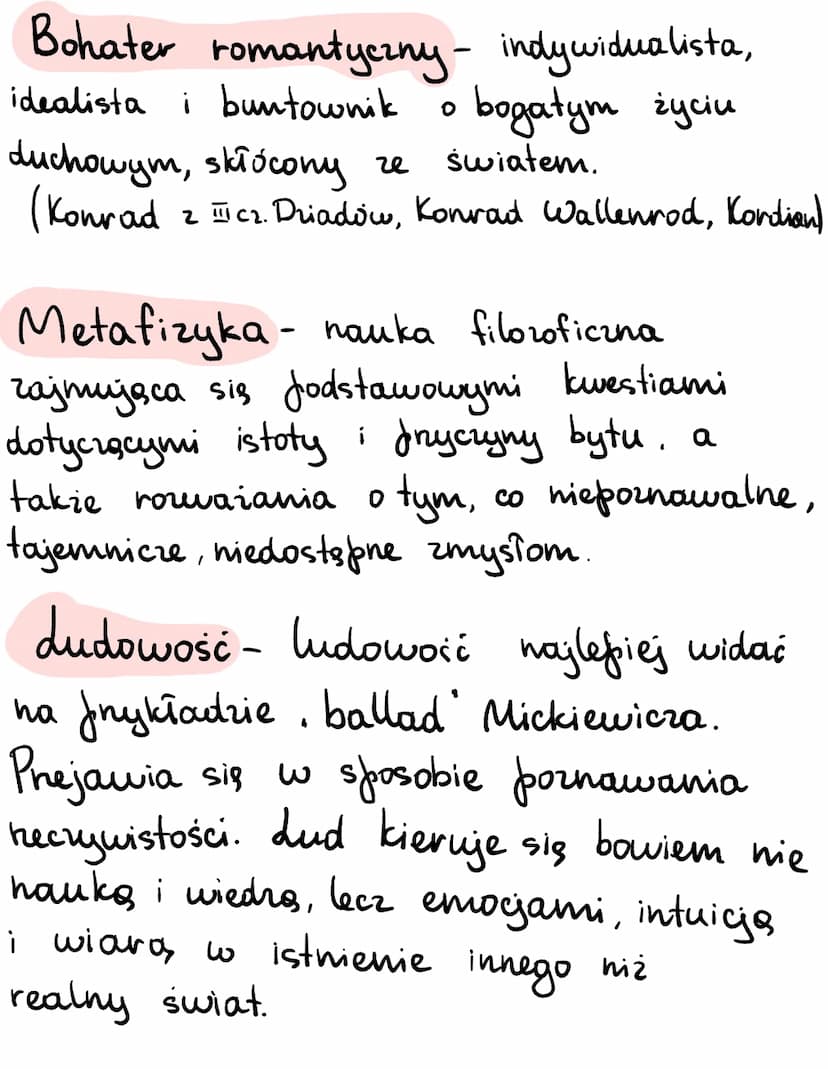 Bohater romantyczny - indywidualista,
idealista i buntownik o bogatym życiu
duchowym, skłócony ze światem.
(Konrad z III cz. Dziadów, Konrad Wallenrod, Kordian)
Metafizyka - nauka filozoficzna
zajmująca się podstawowymi kwestiami
dotyczącymi istoty i przyczyny bytu, a
także rozważania o tym, co niepoznawalne,
tajemnicze, niedostępne zmysłom.
Ludowość - ludowość najlepiej widać
na przykładzie "ballad" Mickiewicza.
Przejawia się w sposobie poznawania
rzeczywistości. Lud kieruje się bowiem nie
nauką i wiedzą, lecz emocjami, intuicją
i wiarą w istnienie innego niż
realny świat.